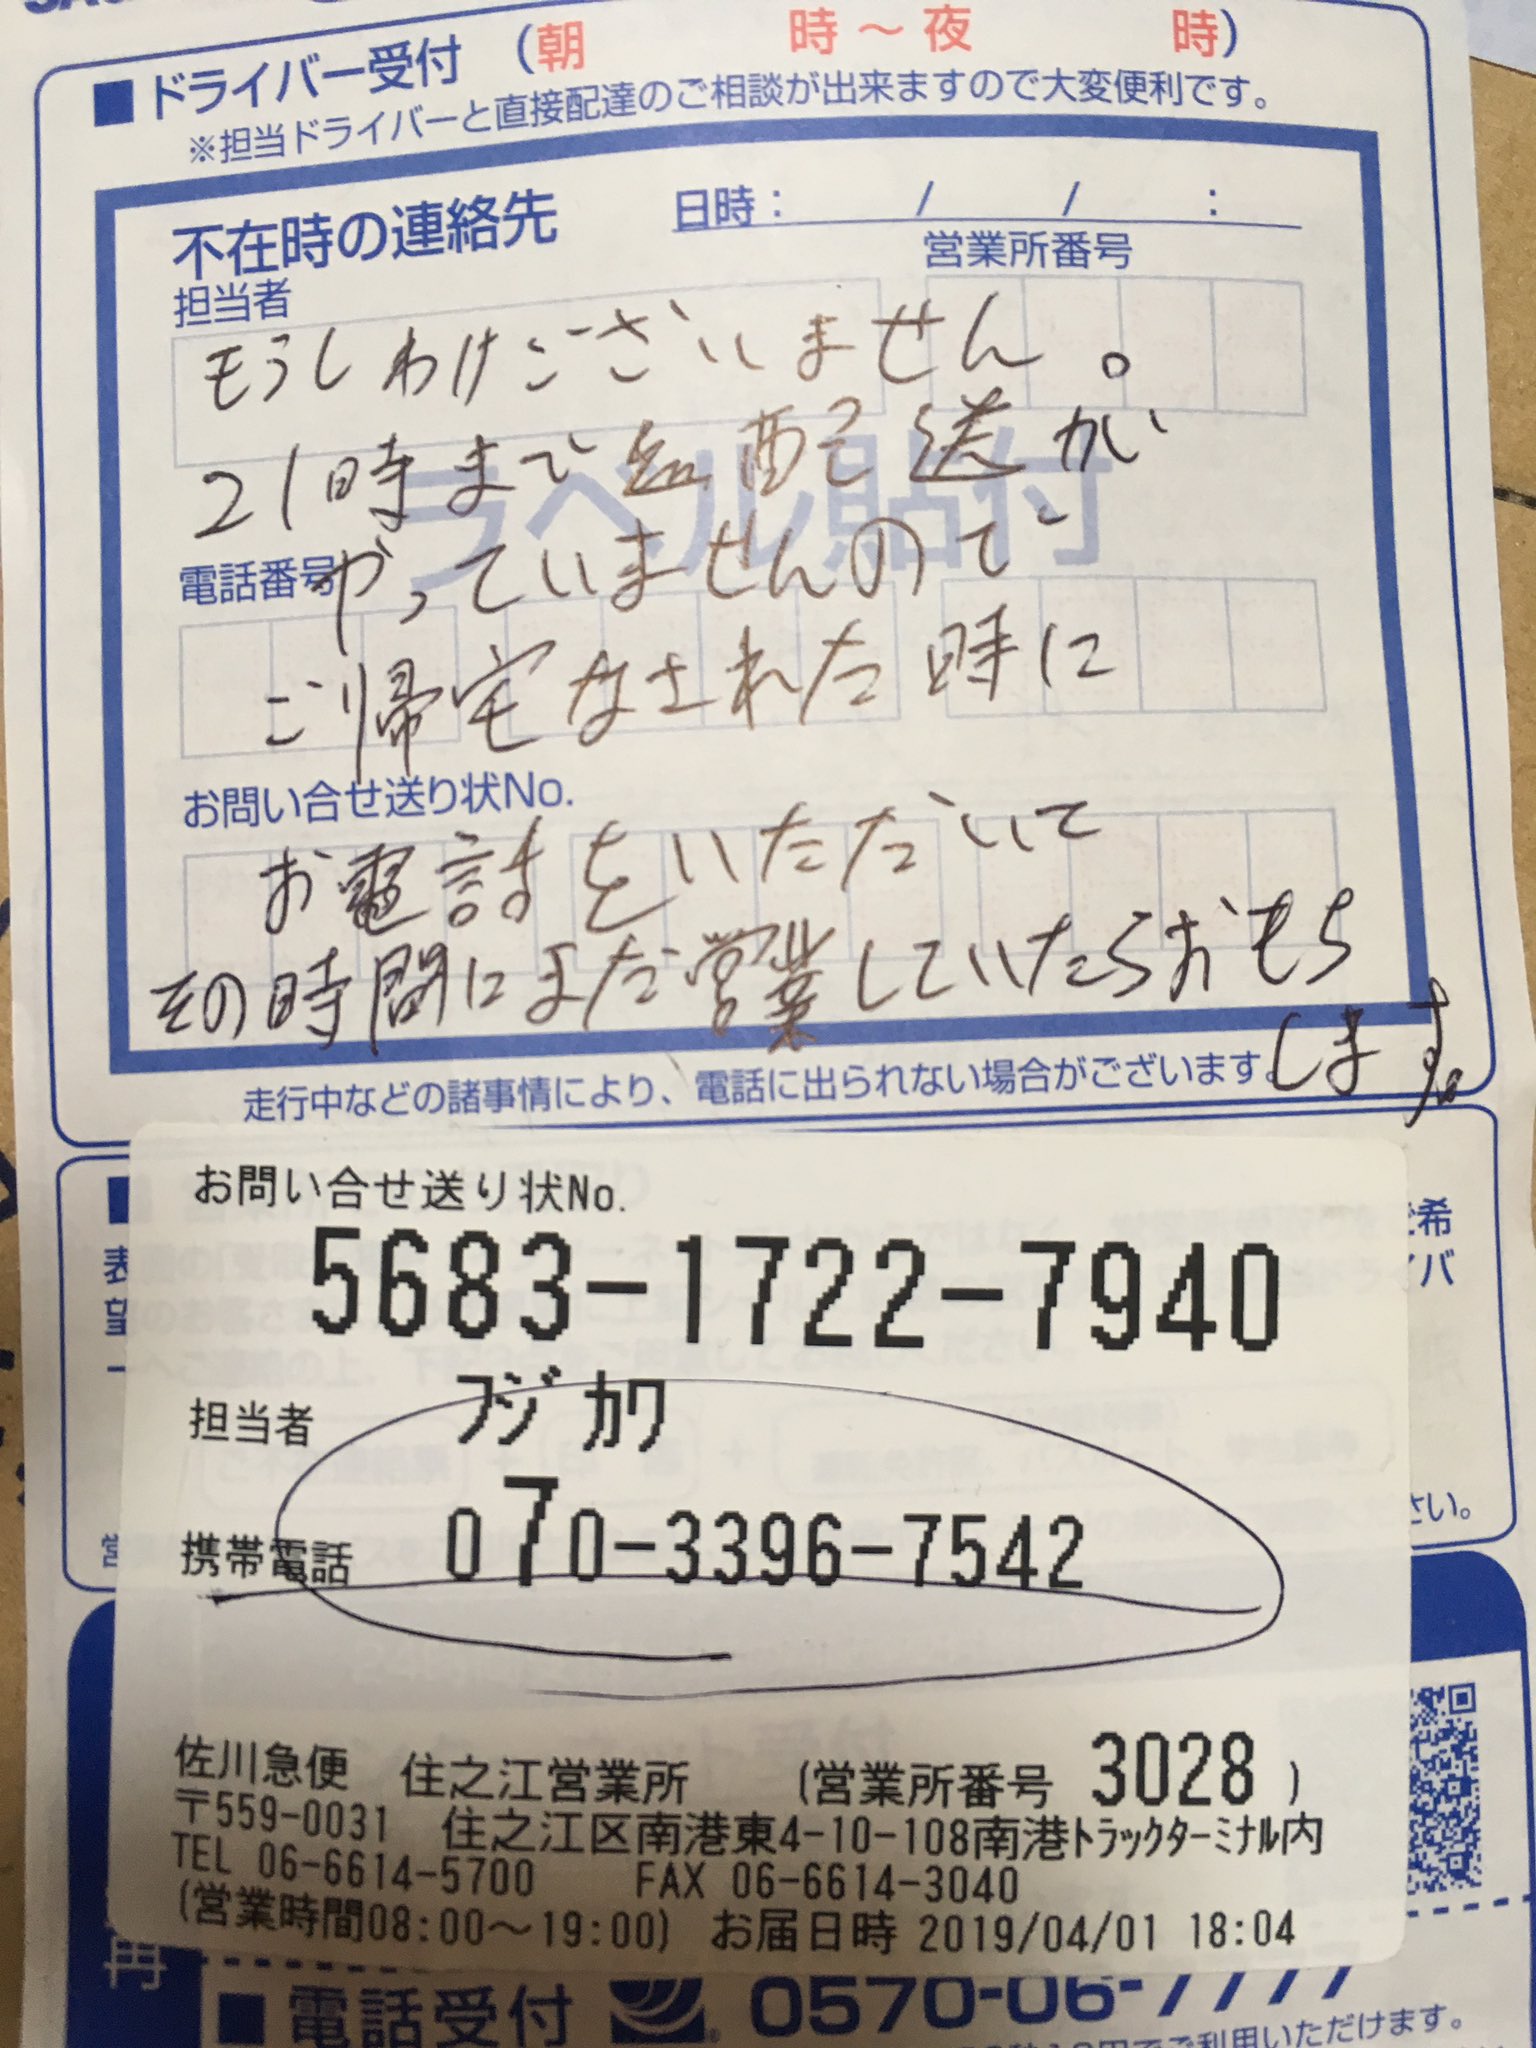 ■ドライバー受付 (朝 時～夜 時)
※担当ドライバーと直接配達のご相談が出来ますので大変便利です。
不在時の連絡先 日時： / / :
担当者 営業所番号
もうしわけございません。
21時まで 配送が
ラベル貼付
電話番号
やっていませんので
ご帰宅なされた時に
お問い合せ送り状No.
お電話をいただいて
その時間にまだ営業していたらおもち
します。
走行中などの諸事情により、電話に出られない場合がございます。
お問い合せ送り状No.
5683-1722-7940
担当者 フジカワ
携帯電話 070-3396-7542
佐川急便 住之江営業所 (営業所番号 3028 )
〒559-0031 住之江区南港東4-10-108南港トラックターミナル内
TEL 06-6614-5700 FAX 06-6614-3040
(営業時間08:00～19:00) お届日時 2019/04/01 18:04
■電話受付 0570-06-7777
でご利用いただけます。